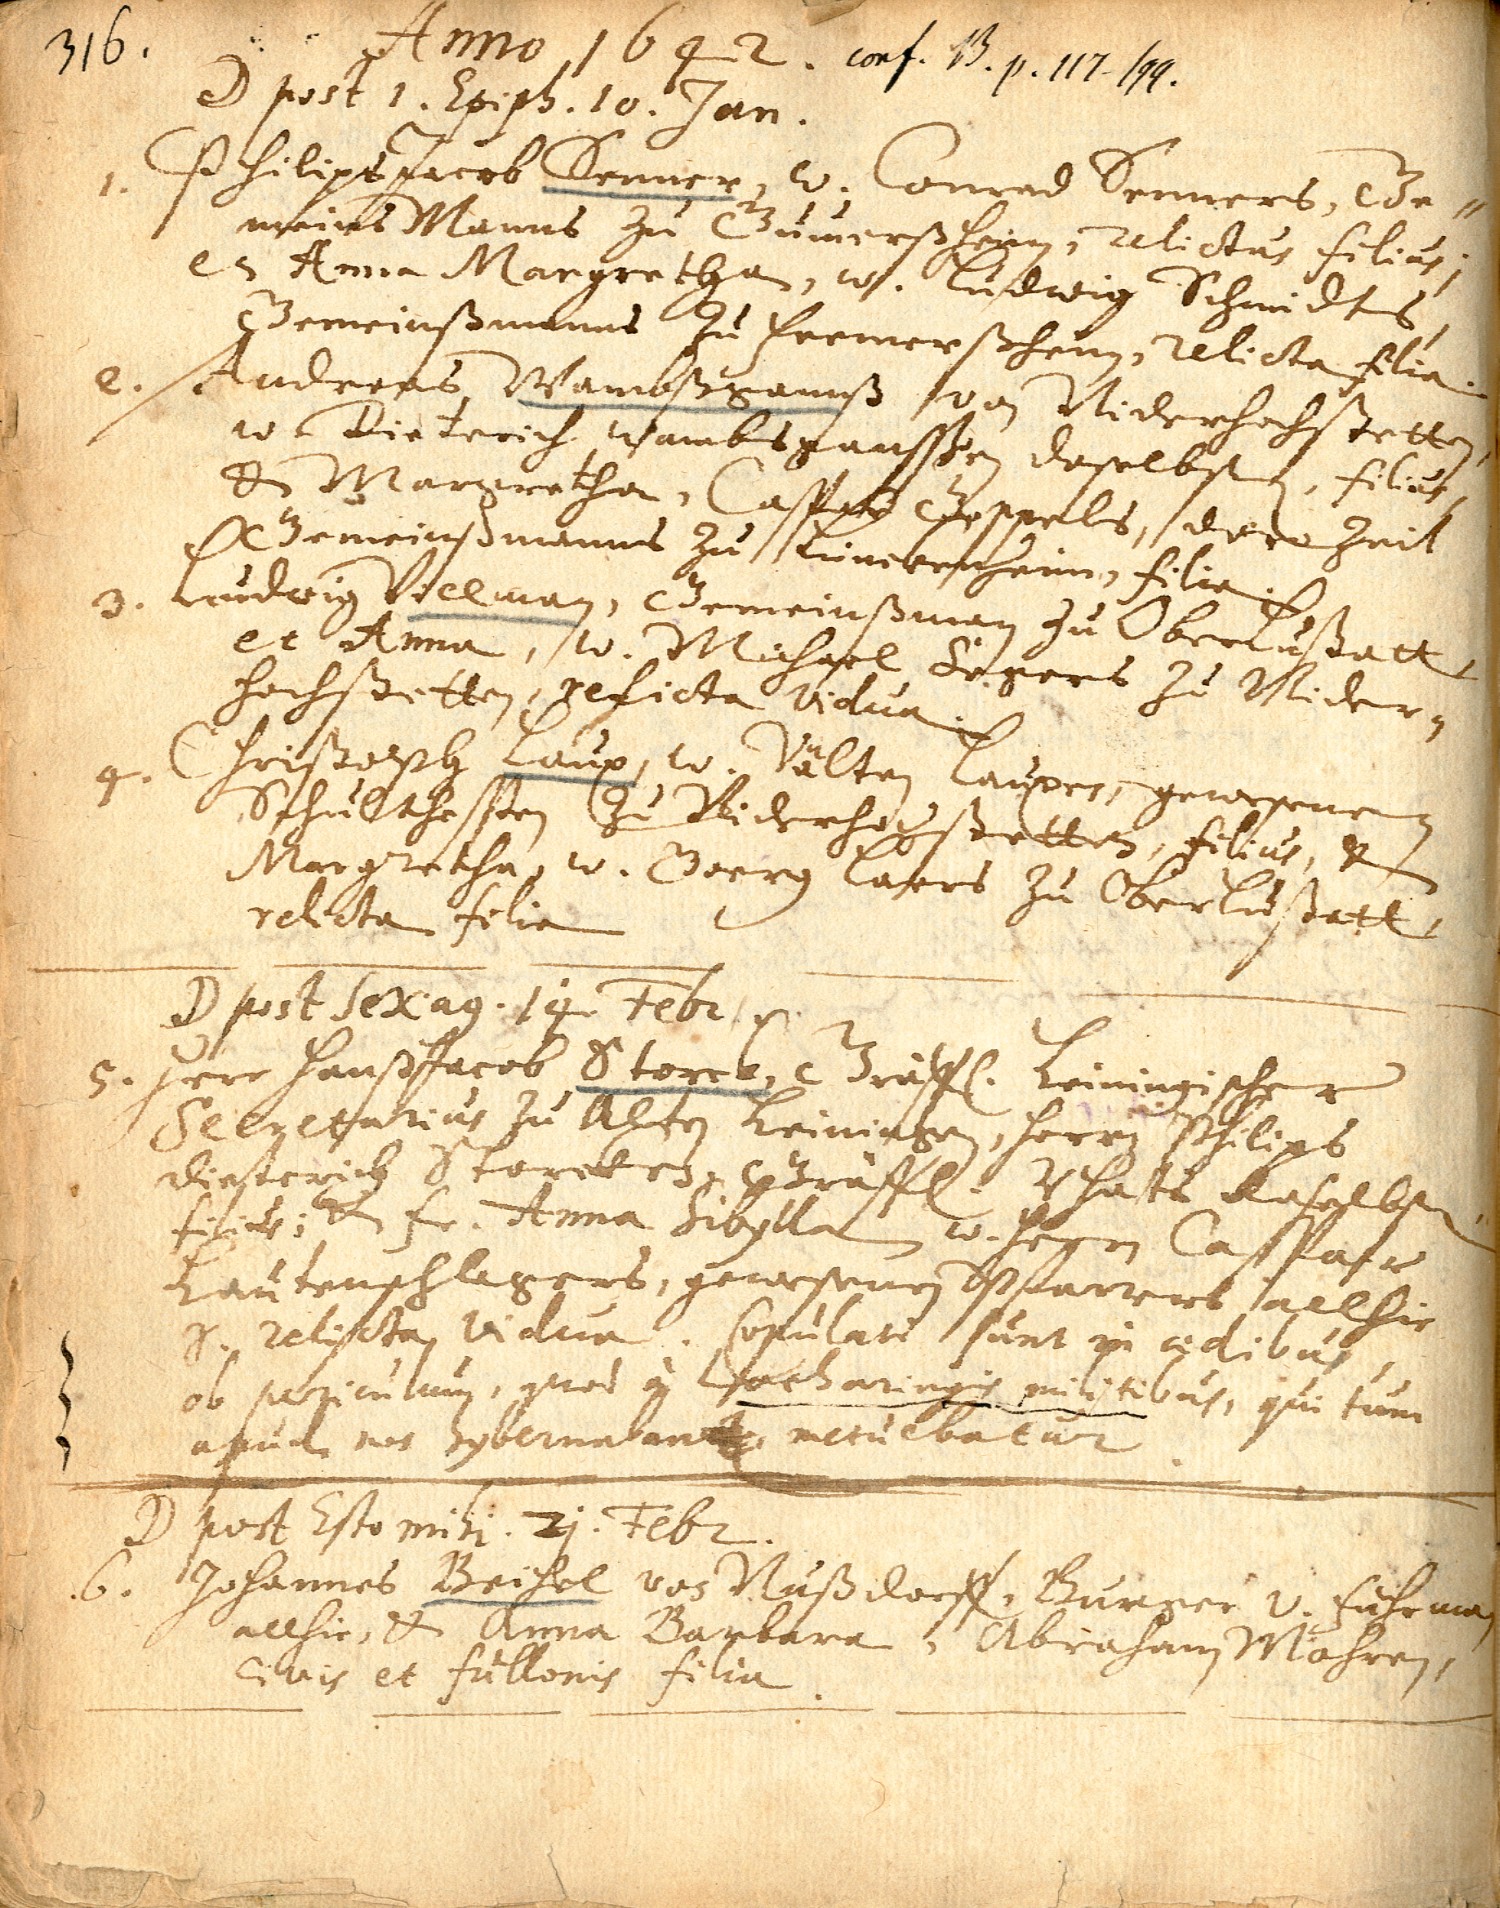 316. Anno 1642. conf. B. p. 117-199.
D post 1. Epiph. 10. Jan.
1. Philips Jacob Senner, w. Conrad Senners, Ge„
meins Manns zu Gumerßheim, relictus filius;
et Anna Margretha, w. Ludwig Schmidts,
Gemeinßmanns zu Freimerßheim, relicta filia.
2. Andreas Wambßganß von Niderhochstetten,
w. Dieterich Wambsganssen daselbsten, filius,
& Margretha, Caspar Geppels, der Zeit
Gemeinßmanns zu filia.
3. Ludwig Villman, Gemeinßman zu Oberlustatt
et Anna, w. Michael Segers zu Nider„
hochstetten, relicta vidua.
4. Christoph Laux, w. Välten Lauxen, gewesenen
Schulthessen zu Niderhochstetten, filius, &
Margretha, w. Georg Laers zu Oberlustatt,
relicta filia
D post Sexag. 14. Febr.
5. Herr Hanß Jacob Storck, Gräffl. Leiningischer
Secretarius zu Alten Leiningen, Herrn Philips
Dieterich Storcken, Gräffl. Rhats daselbsten
filius; & Fr. Anna Sibylla w. Herrn Caspar
Lautenschlagers, gewesenen Pfarrers allhie
S. relicta vidua. Copulati sunt in ædibus,
ob periculum, quod à Lotharingis militibus, qui tum
apud nos hybernabant, metuebatur.
D post Estomihi. 21. Febr.
6. Johannes Beihel von Nußdorff, Burger v. Fuhrman
allhie, & Anna Barbara, Abraham Mohren,
civis et fullonis filia.